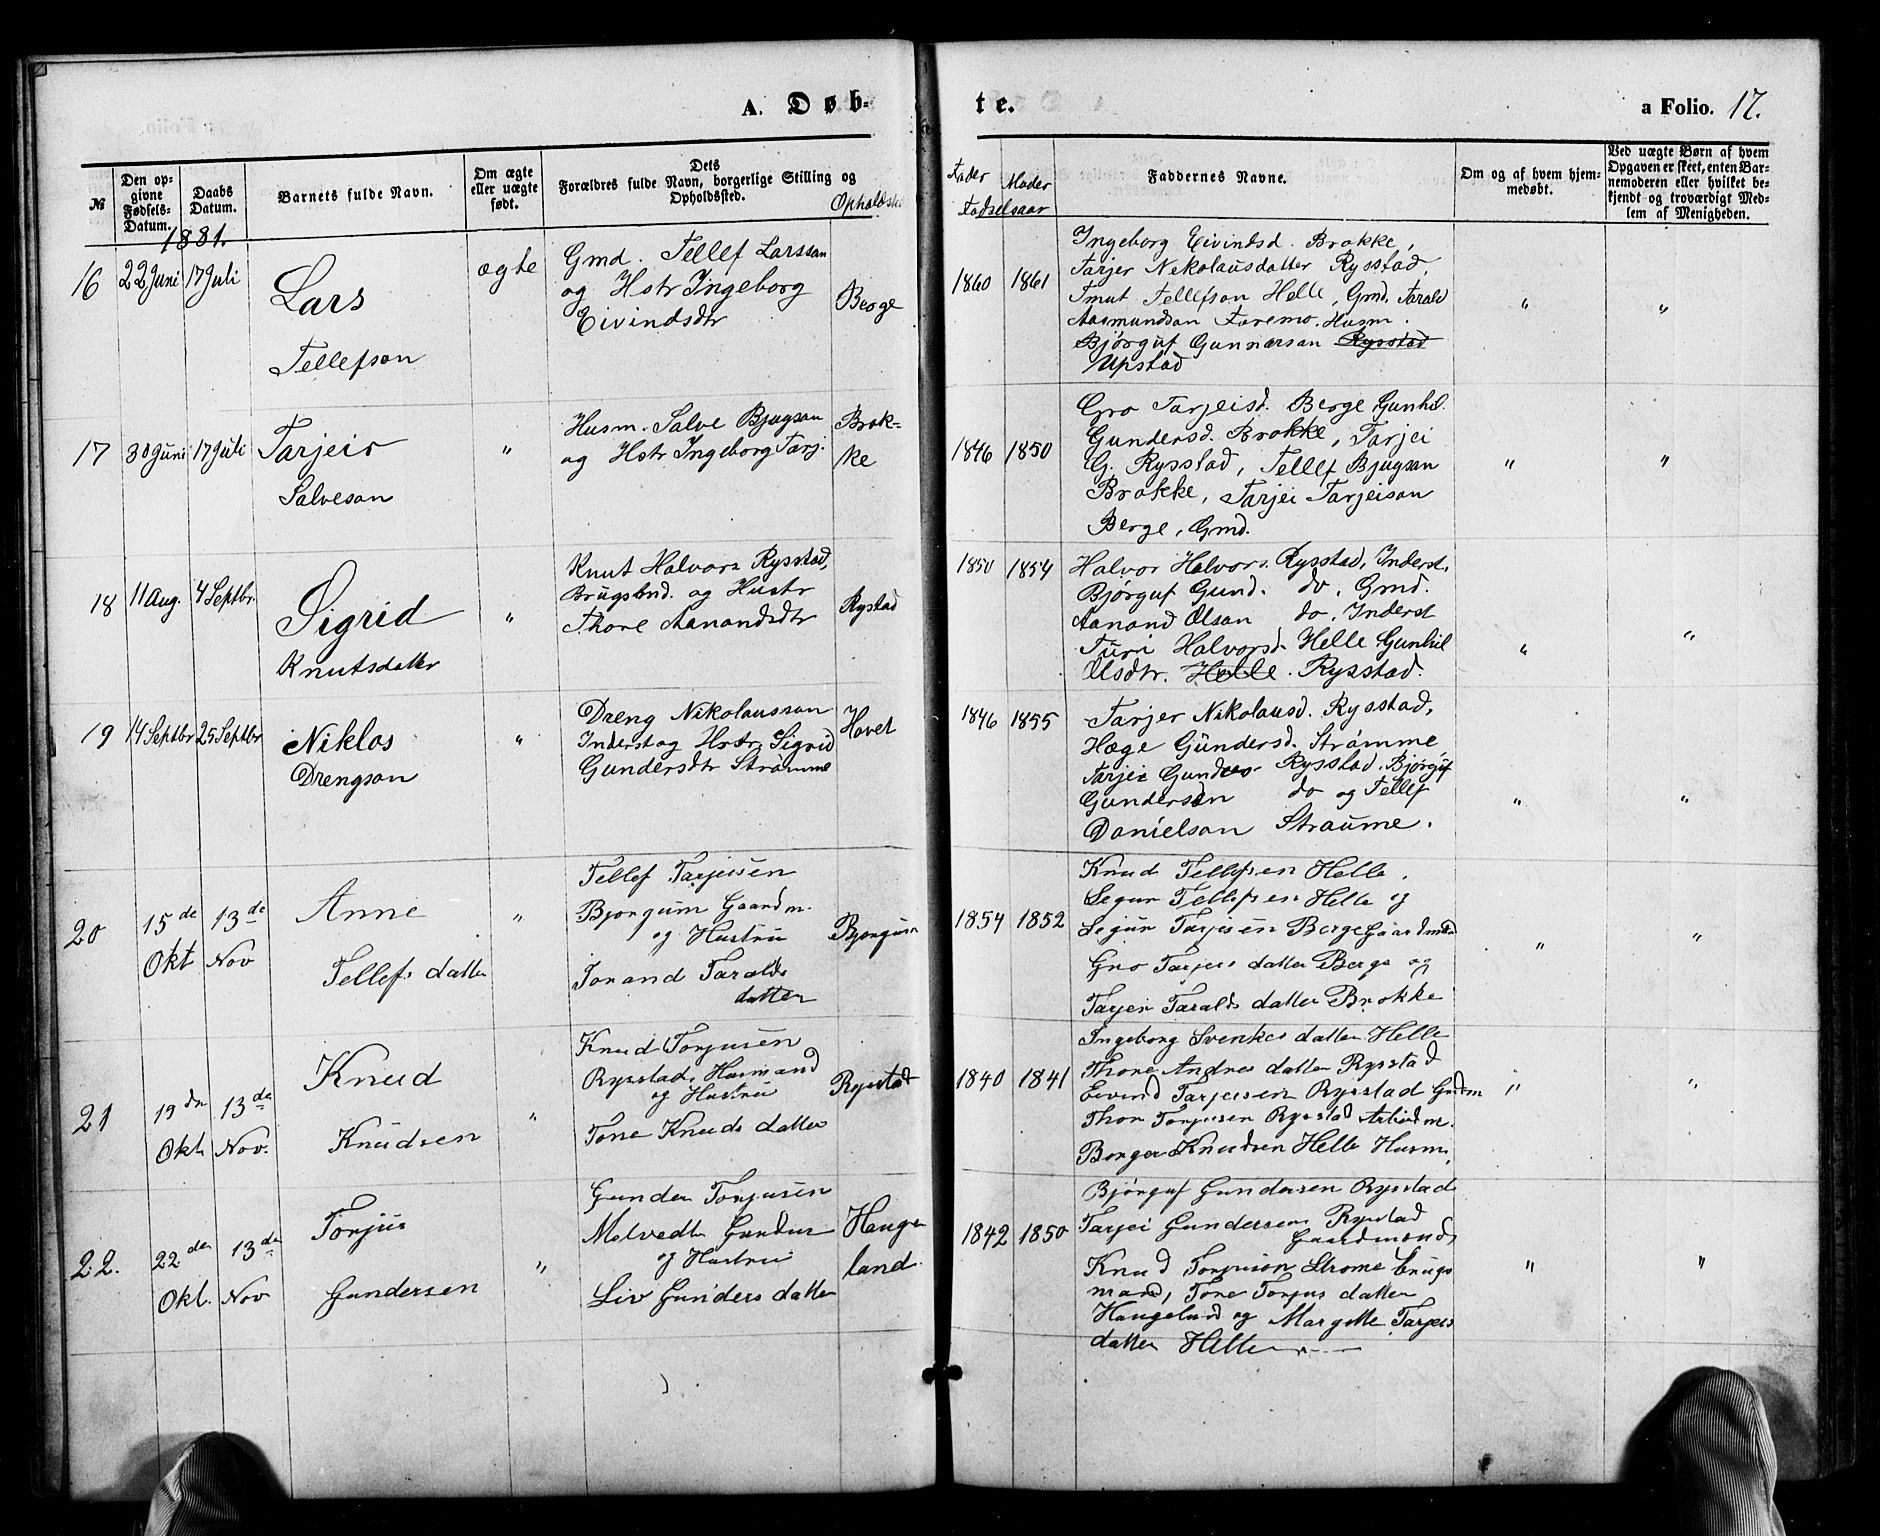 A. Døb-
te.
a Folio. 17.
№
Den op-
givne
Fødsels-
Datum.
Daabs
Datum.
Barnets fulde Navn.
Om ægte
eller uægte
født.
Dets
Forældres fulde Navn, borgerlige Stilling og
Opholdssted.
Opholdsst
Fader
Moder
Fødselsaar
Faddernes Navne.
Om og af hvem hjem-
medøbt.
Ved uægte Børn af hvem
Opgaven er skeet, enten Bar-
nemoderen eller hvilket be-
kjendt og troværdigt Med-
lem af Menigheden.
1881.
16
22 Juni
17 Juli
Lars
Tellefson
ægte
Gmd. Tellef Larsson
og Hstr Ingeborg
Eivindsdtr
Berge
1860
1861
Ingeborg Eivindsd. Brokke,
Tarjer Nekolausdatter Rysstad,
Tellefson Helle, Gmd. Tarald
Aasmundson Faremo. Husm.
Bjørguf Gunnarsan Rysstad
Upstad
"
"
17
30 Juni
17 Juli
Tarjeir
Salveson
"
Husm. Salve Bjugson
og Hstr Ingeborg Tarj.
Brok-
ke
1846
1850
Gro Tarjeisd. Berge Gunhil.
Gundersd. Brokke, Tarjei
G. Rysstad, Tellef Bjugson
Brokke, Tarjei Tarjeison
Berge, Gmd.
"
"
18
11 Aug.
4 Septbr.
Sigrid
Knutsdatter
"
Knut Halvors Rysstad,
Brugsbnd. og Hustr
Thore Aanandsdtr
Rystad
1850
1854
Halvor Halvors. Rysstad, Inderst.
Bjørguf Gund. do. Gmd.
Aanand Olson do. Inderst
Turi Halvorsd. Helle Gunhil
Olsdtr. Helle. Rysstad.
"
"
19
14 Septbr
25 Septbr
Niklos
Drengson
"
Dreng Nikolausson
Inderst og Hstr. Sigrid
Gundersdtr Strømme
Hovet
1846
1855
Tarjer Nikolausd. Rysstad,
Hæge Gundersd. Strømme,
Tarjei Gunders Rysstad. Bjørguf
Gundersen do og Tellef
Danielson Straume.
"
"
20
15 de
Okt
13 de
Nov
Anne
Tellefs datter
"
Tellef Tarjeisen
Bjorgum Gaardm.
og Hustru
Torand Taralds
datter
Bjorgum
1854
1852
Knud Tellefsen Helle,
Segur Tellefsen Helle og
Segur Tarjesen Berge Gaardmænd
Gro Tarjeis datter Berge og
Tarjer Taralds datter Brokke
"
"
21
19 de
Okt
13 de
Nov.
Knud
Knudsen
"
Knud Torjusen
Rysstad, Husmand
og Hustru
Tone Knuds datter
Rysstad
1840
1841
Ingeborg Svenkes datter Helle
Thore Andres datter Rysstad
Eivind Tarjeisen Rysstad Grdm
Thor Torjusen Rysstad Arbeidm.
Borger Knudsen Helle Husm,
"
"
22.
22 de
Okt.
13 de
Nov
Torjus
Gundersen
"
Gunder Torjusen
og Hustru
Liv Gunders datter
Hauge
land.
1842
1850
Bjørguf Gundersen Rysstad
Tarjei Gundersen Rysstad
Gaardmænd,
Knud Torjuson Strome brugs
mand, Tone Torjus datter
Haugeland og Margitte Tarjeis
datter Helle
"
"